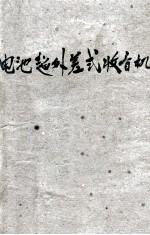 电池超外差式收音机